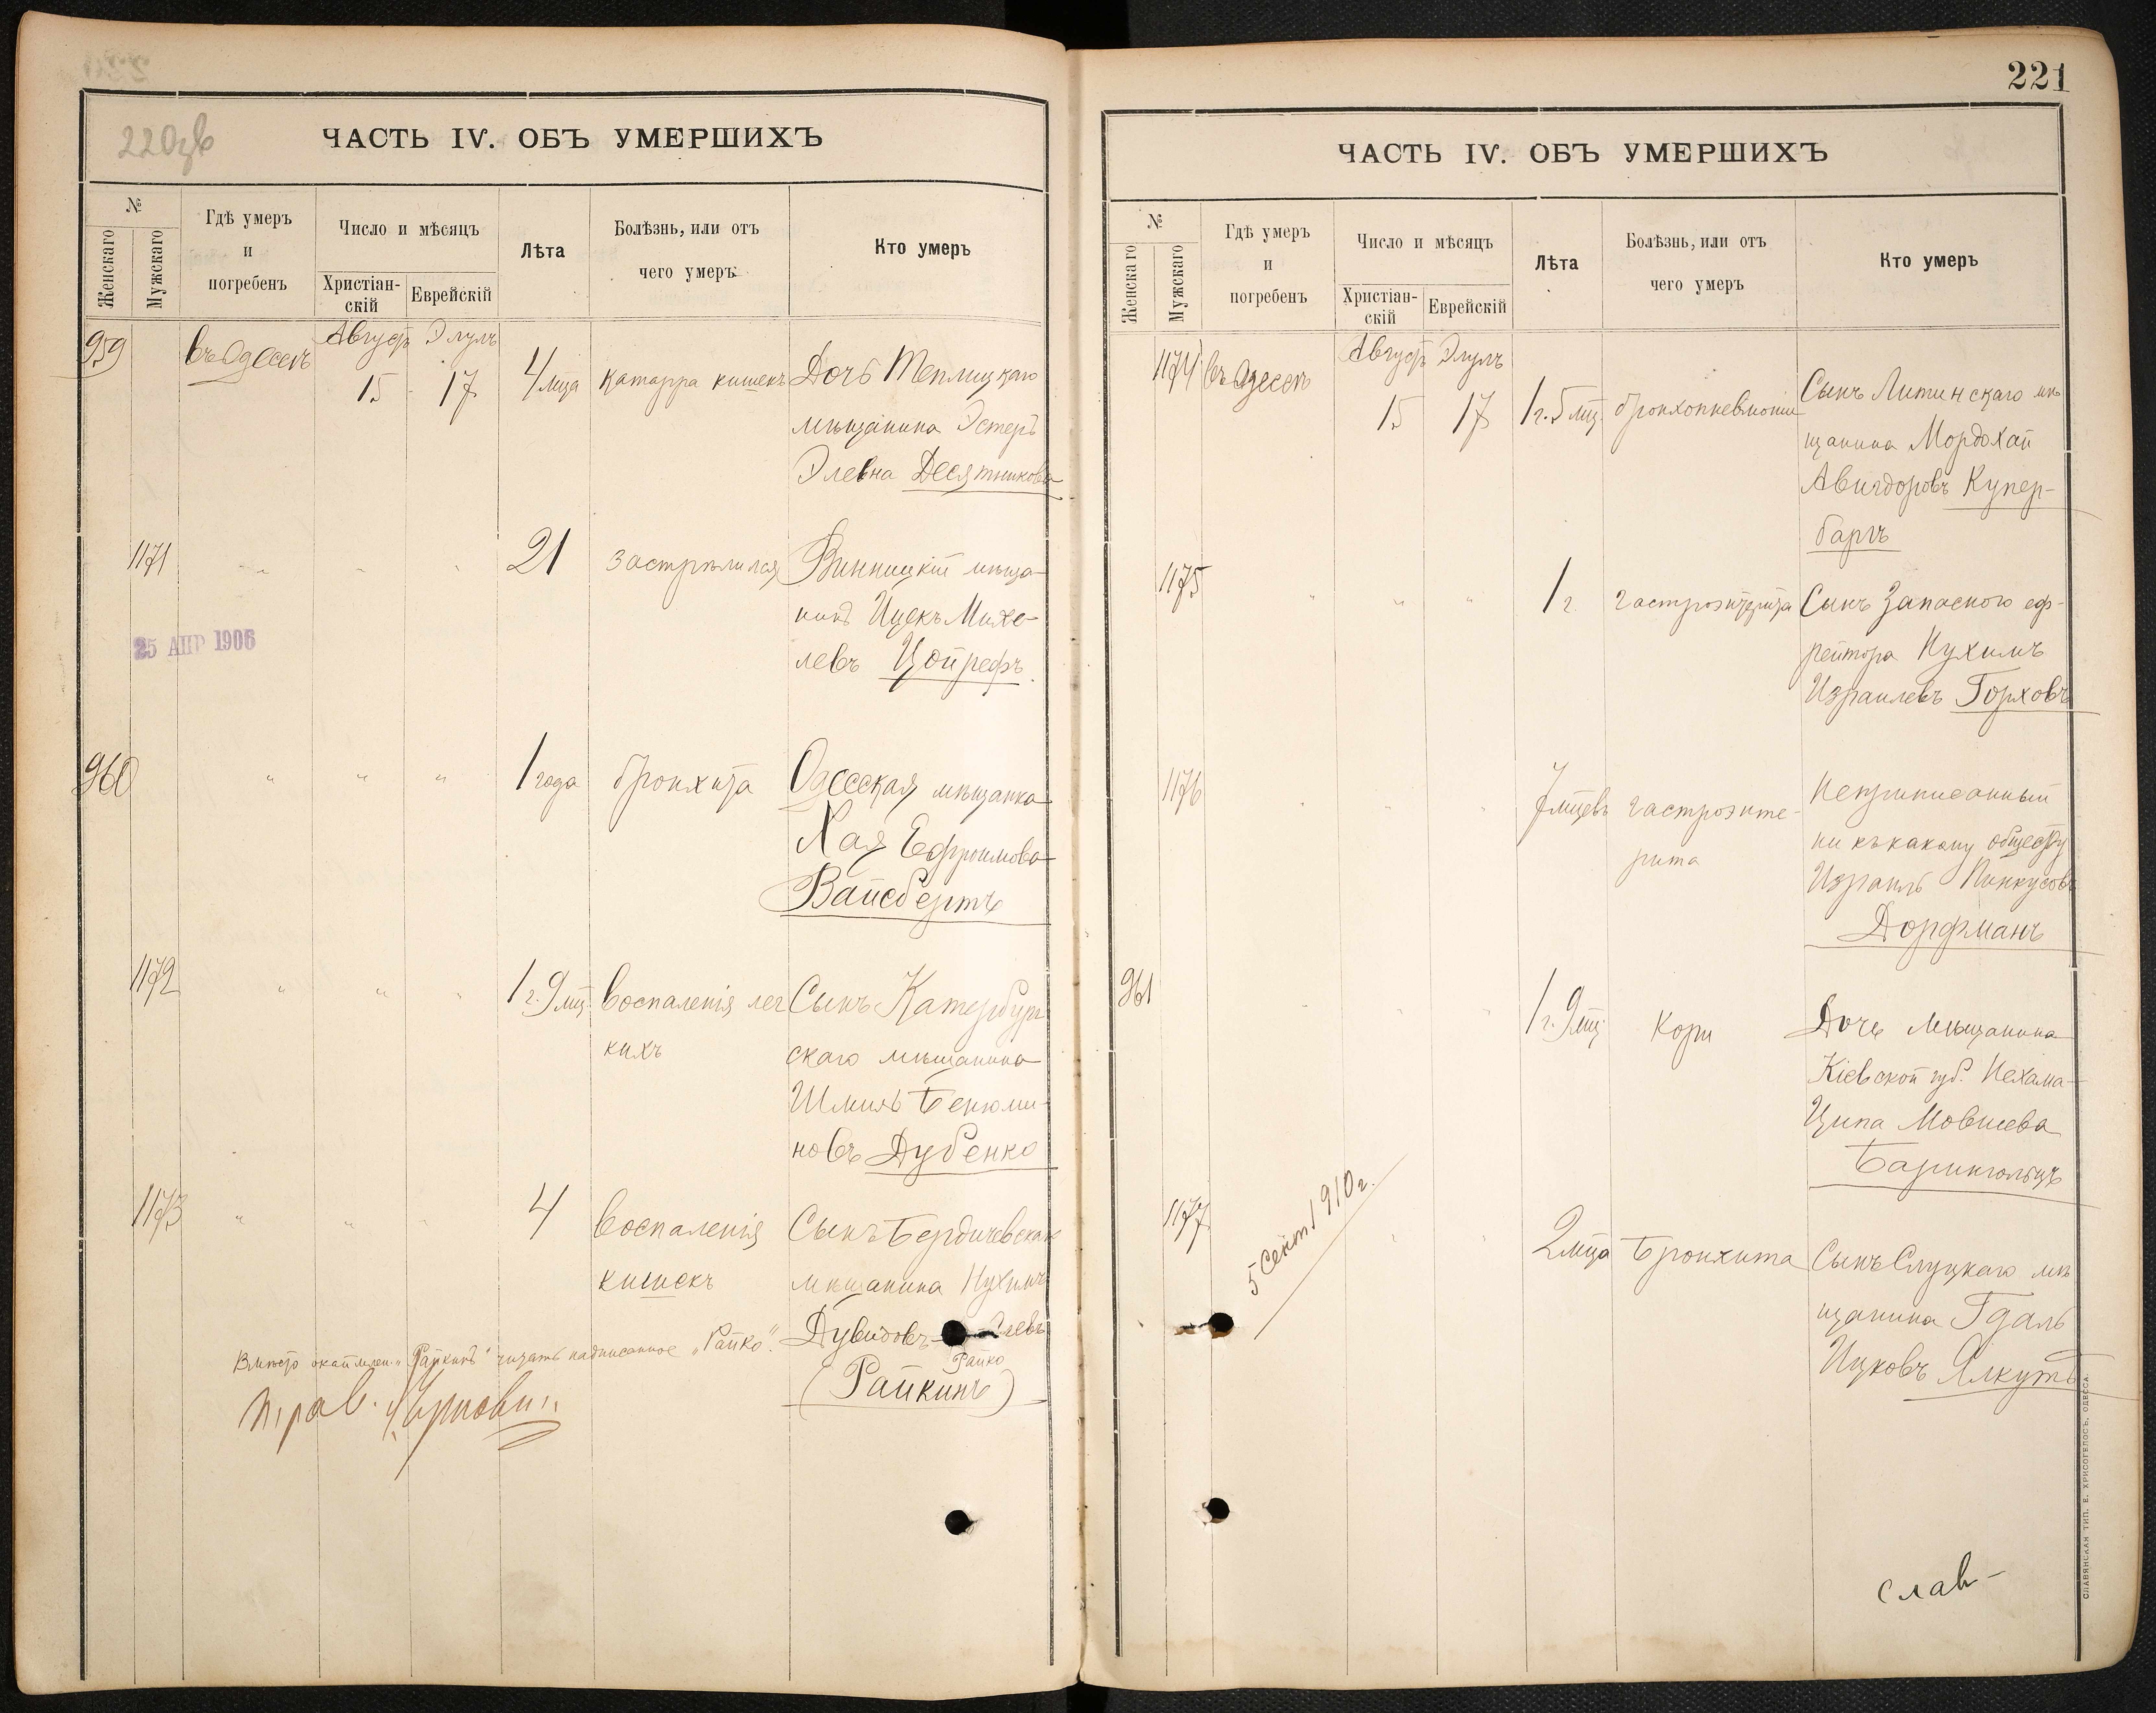 220зв
ЧАСТЬ IV. ОБЪ УМЕРШИХЪ
№
Женскаго
Мужскаго
Гдѣ умеръ
и
погребенъ
Число и мѣсяцъ
Христіан-
скій
Еврейскій
Лѣта
Болѣзнь, или отъ
чего умеръ
Кто умеръ
959
въ Одессѣ
Августъ
Элулъ
15
17
4 мца
катарра кишекъ
Дочь Теплицкаго
мѣщанина Эстеръ
Элевна Десятникова
1171
" " "
21
застрѣлился
Винницкій мѣща-
нинъ Ицекъ Михе-
левъ Цойрефъ.
25 АПР 1906
960
" " "
1 года
бронхита
Одесская мѣщанка
Хая Ефроимова
Вайсбергъ
1172
" " "
1 г. 9 мц.
воспаленія лег
кихъ
Сынъ Катербург
скаго мѣщанина
Шмиль Бенюми-
новъ Дубенко
1173
" " "
4
воспаленія
кишекъ
Сынъ Бердичевскаго
мѣщанина Нухимъ
Дувидовъ
Райко
(Райкинъ)
Вмѣсто окаймлен. „Райкинъ" читать надписанное „Райко".
221
ЧАСТЬ IV. ОБЪ УМЕРШИХЪ
№
Женскаго
Мужскаго
Гдѣ умеръ
и
погребенъ
Число и мѣсяцъ
Христіан-
скій
Еврейскій
Лѣта
Болѣзнь, или отъ
чего умеръ
Кто умеръ
1174
въ Одессѣ
Августъ
Элулъ
15
17
1 г. 5 мц.
бронхопневмоніи
Сынъ Литинскаго мѣ
щанина Мордохай
Авигдоровъ Купер-
баргъ
1175
" " "
1 г.
гастроэнтерита
Сынъ Запаснаго еф-
рейтора Нухимъ
Израилевъ Горховъ
1176
" " "
7 мцевъ
гастроэнте-
рита
Неприписанный
ни къ какому обществу
Израиль Пинкусовъ
Дорфманъ
961
" " "
1 г. 9 мц.
Кори
Дочь мѣщанина
Кіевской губ. Нехама-
Ципа Мовшева
Барингольцъ
1177
5 Сент. 1910 г.
" "
2 мца
Бронхита
Сынъ Слуцкаго мѣ
щанина Гдаль
Ицковъ Ялкутъ
Слав-
СЛАВЯНСКАЯ ТИП. Е. ХРИСОГЕЛОСЪ, ОДЕССА.